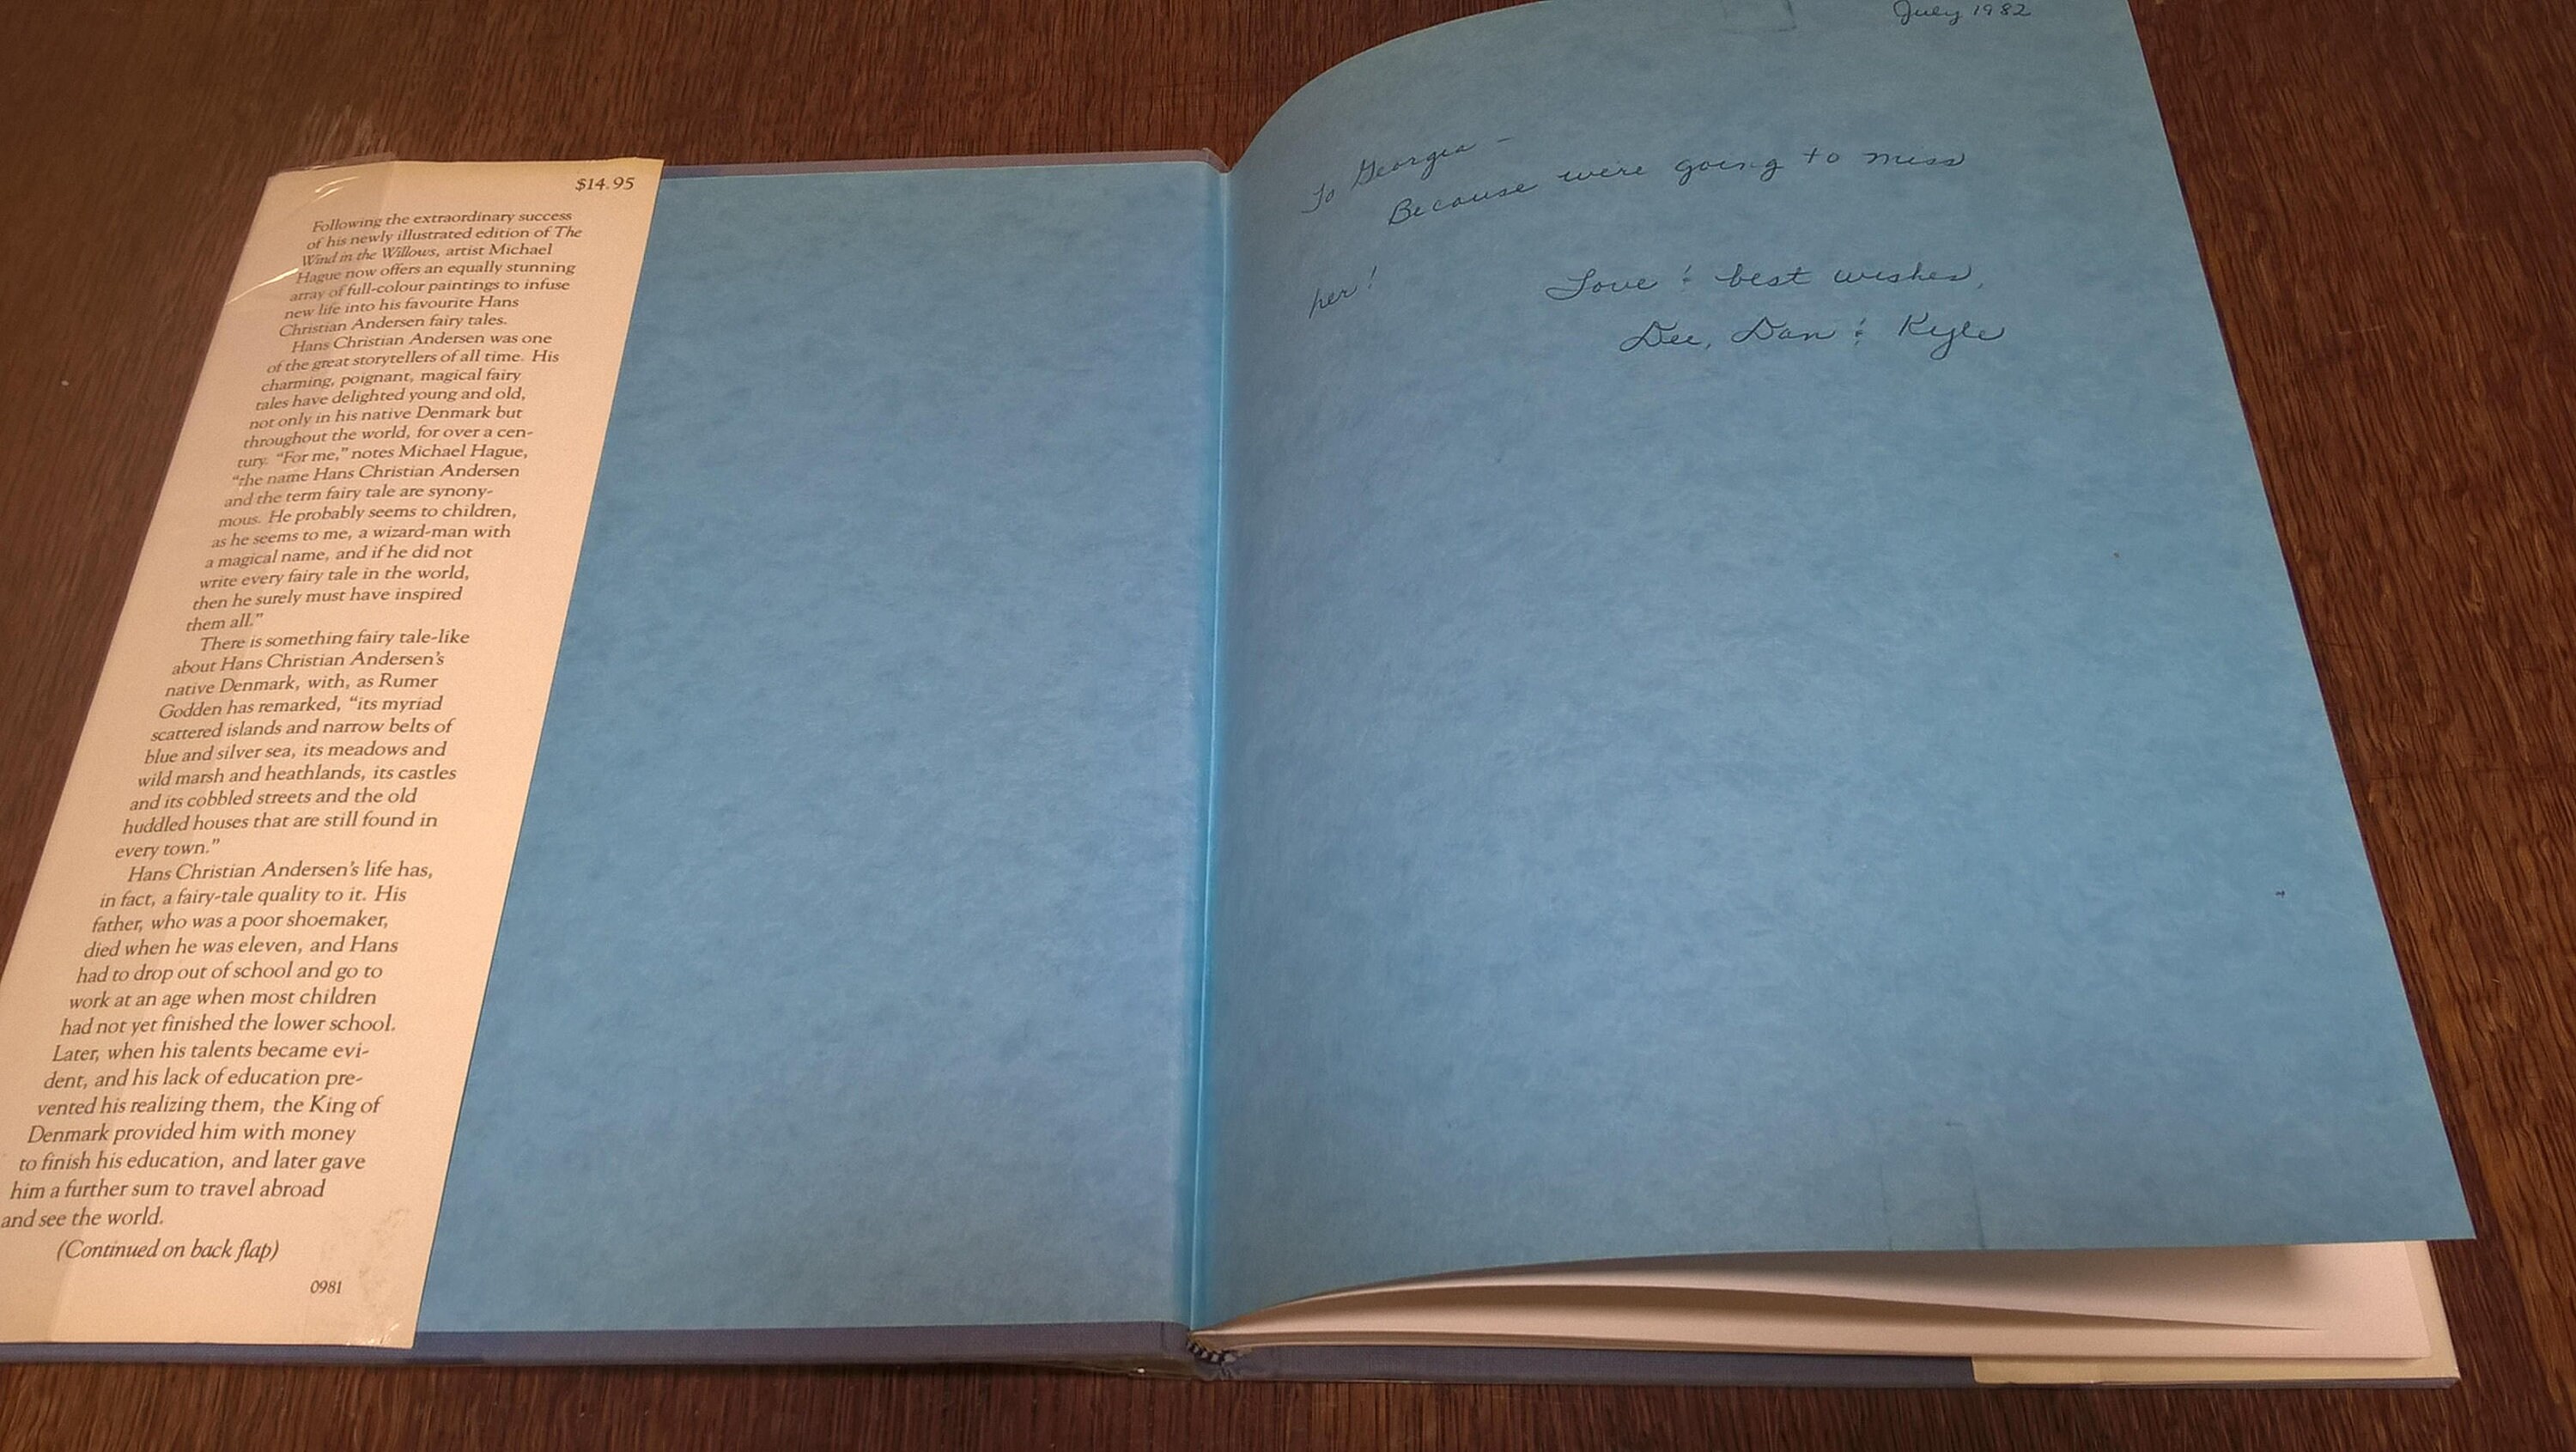 $14.95
Following the extraordinary success
of his newly illustrated edition of The
Wind in the Willows, artist Michael
Hague now offers an equally stunning
array of full-colour paintings to infuse
new life into his favourite Hans
Christian Andersen fairy tales.
Hans Christian Andersen was one
of the great storytellers of all time. His
charming, poignant, magical fairy
tales have delighted young and old,
not only in his native Denmark but
throughout the world, for over a cen-
tury. “For me,” notes Michael Hague,
“the name Hans Christian Andersen
and the term fairy tale are synony-
mous. He probably seems to children,
as he seems to me, a wizard-man with
a magical name, and if he did not
write every fairy tale in the world,
then he surely must have inspired
them all.”
There is something fairy tale-like
about Hans Christian Andersen’s
native Denmark, with, as Rumer
Godden has remarked, “its myriad
scattered islands and narrow belts of
blue and silver sea, its meadows and
wild marsh and heathlands, its castles
and its cobbled streets and the old
huddled houses that are still found in
every town.”
Hans Christian Andersen’s life has,
in fact, a fairy-tale quality to it. His
father, who was a poor shoemaker,
died when he was eleven, and Hans
had to drop out of school and go to
work at an age when most children
had not yet finished the lower school.
Later, when his talents became evi-
dent, and his lack of education pre-
vented his realizing them, the King of
Denmark provided him with money
to finish his education, and later gave
him a further sum to travel abroad
and see the world.
(Continued on back flap)
0981
July 1982
To Georgia –
Because we're going to miss
her!
Love & best wishes,
Dee, Dan & Kyle